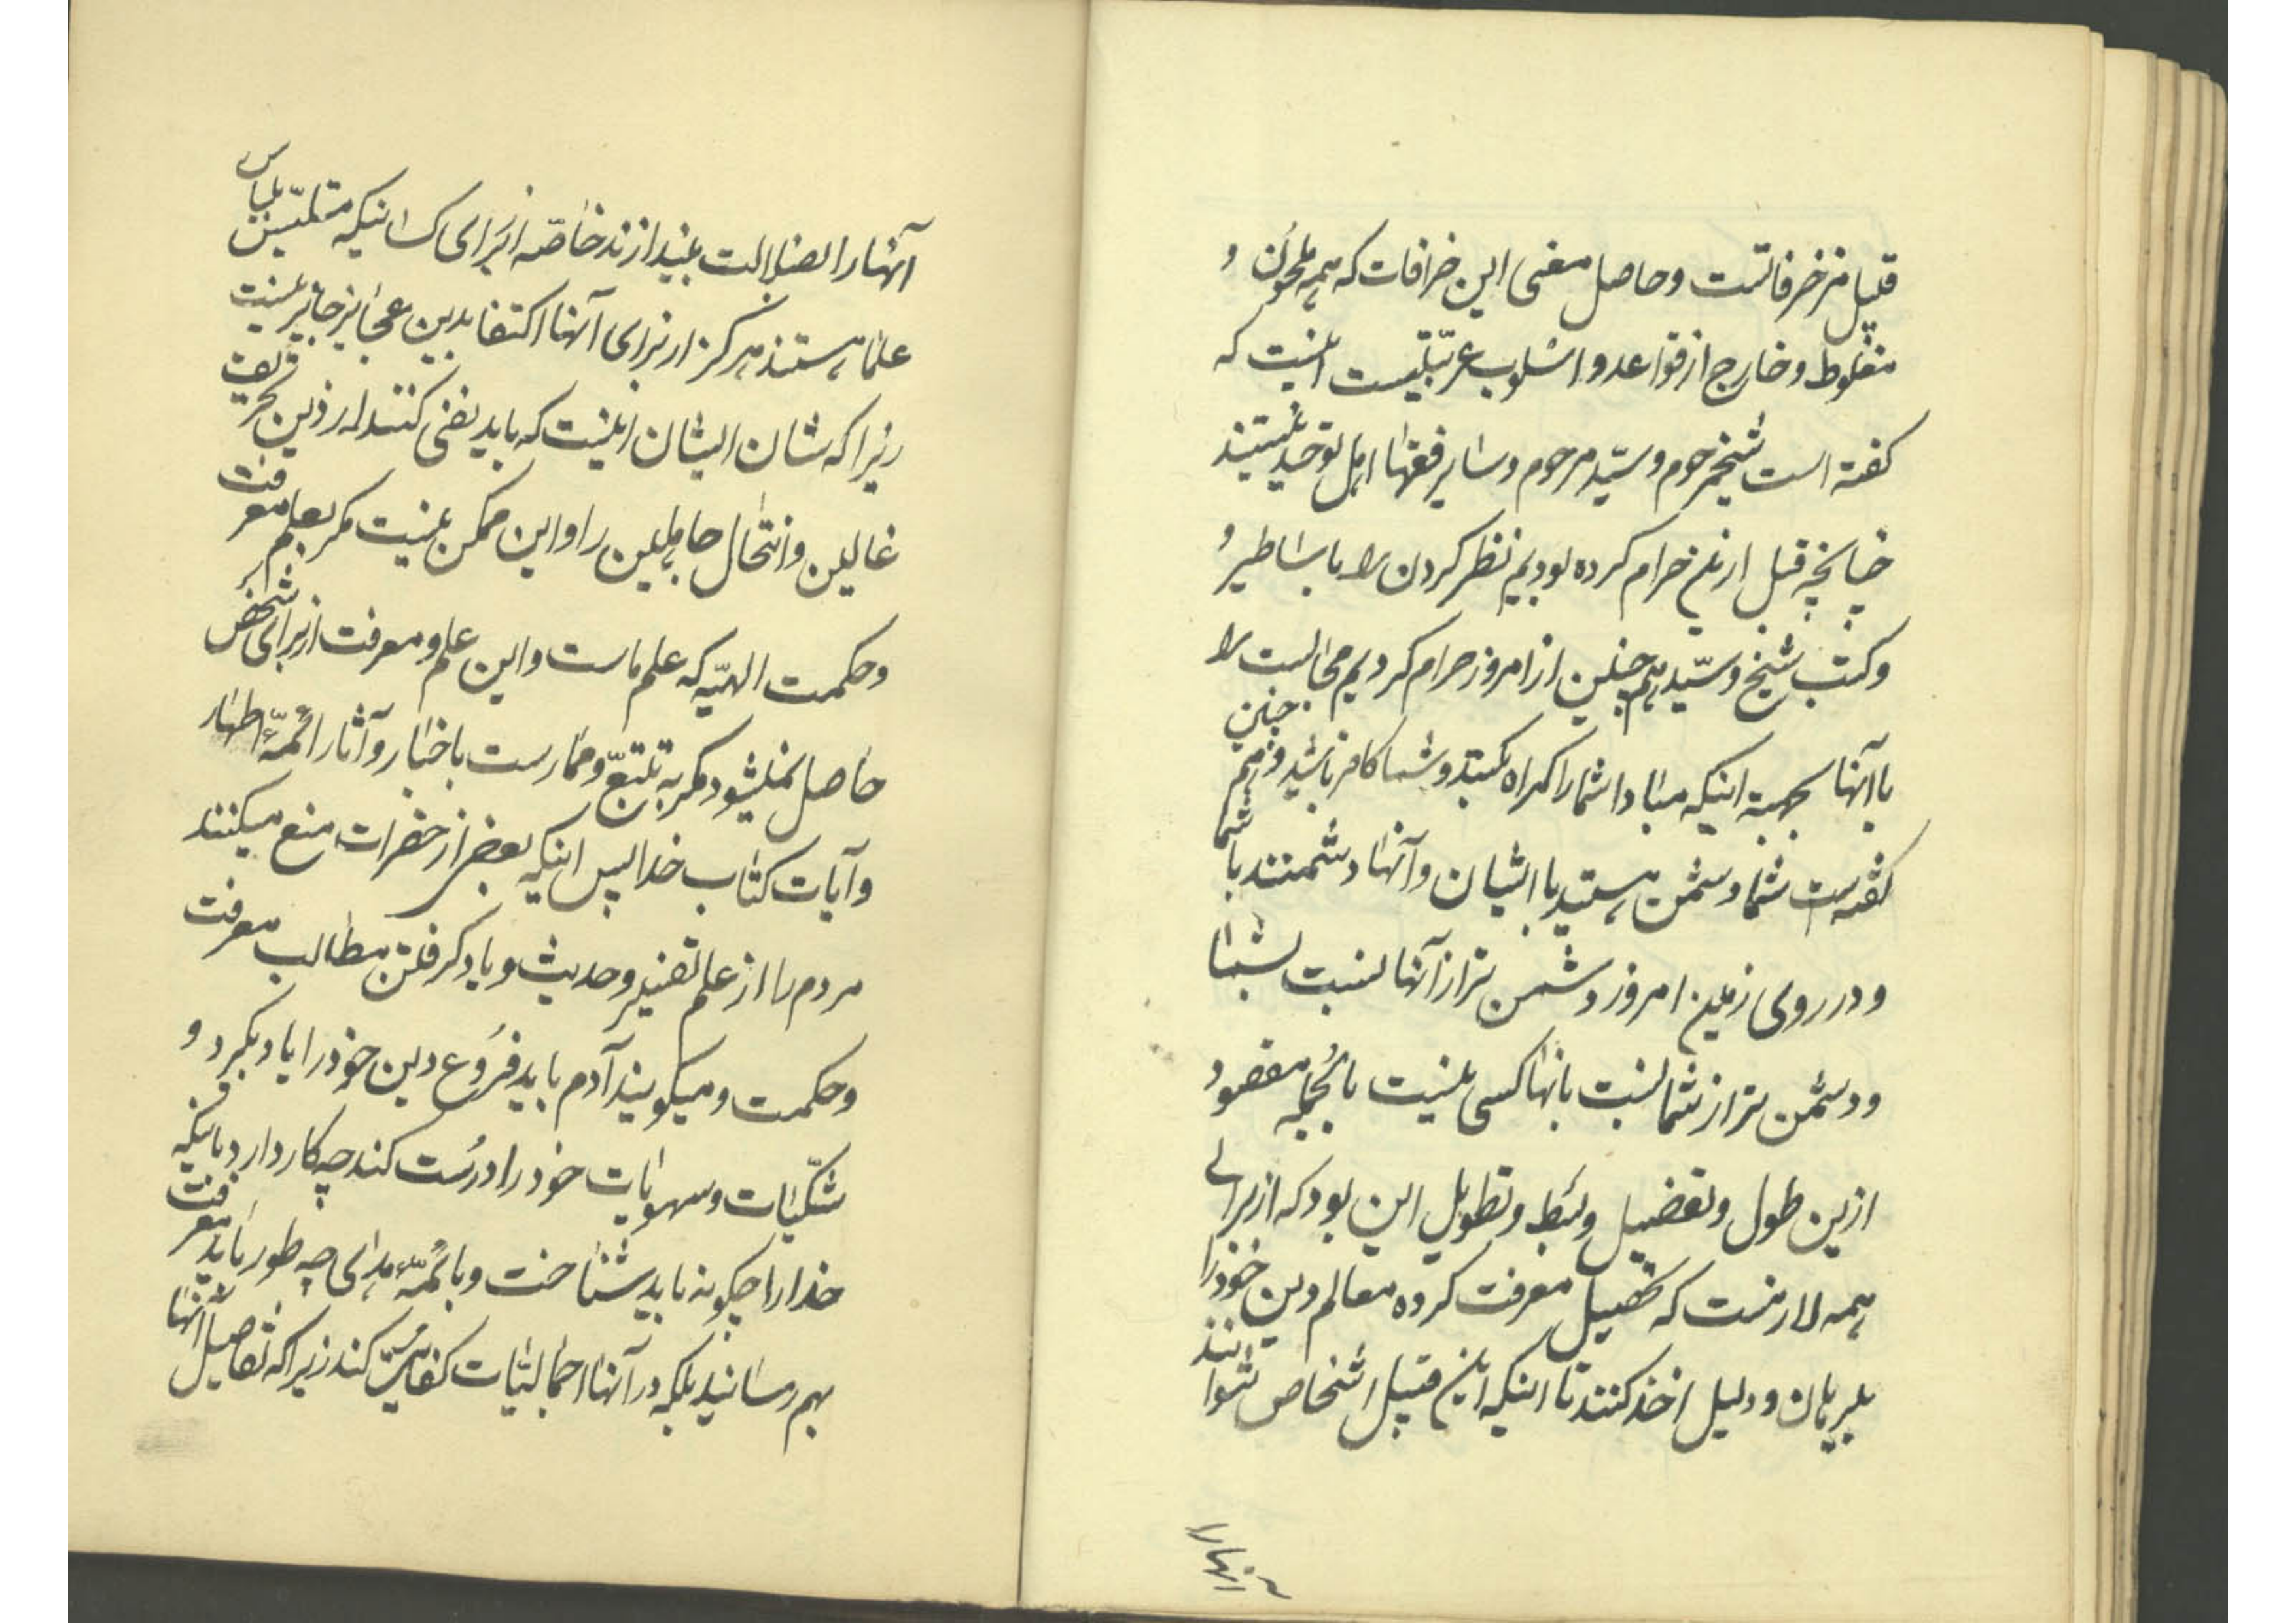 قبیل مزخرفاتست و حاصل معنی این خرافات که همه ملحون و
مغلوط و خارج از قواعد و اسلوب عربیّتست اینست که
گفته است شیخ مرحوم و سیّد مرحوم و سایر فقها اهل توحید نیستند
چنانچه قبل ازین حرام کرده بودیم نظر کردن را باساطیر و
و کتب شیخ و سیّد همچنین از امروز حرام کردیم مجالست را
با آنها بجهة اینکه مبادا شما را گمراه کنند و شما کافر باشید و همچنین
گفته‌است شما دشمن هستید با ایشان و آنها دشمنند با شما
و در روی زمین امروز دشمن تر از آنها نسبت بشما
و دشمن تر از شما نسبت بانها کسی نیست بالجمله مقصود
ازین طول و تفصیل و بسط و تطویل این بود که از برای
همه لازمست که تحصیل معرفت کرده معالم دین خود را
ببرهان و دلیل اخذ کنند تا اینکه این قبیل اشخاص نتوانند
انها را
آنها را بضلالت بیندازند خاصّه از برای کسانیکه متلبّس بلباس
علما هستند هرگز از برای آنها اکتفا بدین عجایز جایز نیست
زیرا که شان ایشان اینست که باید نفی کنند از دین تحریف
غالین و انتحال جاهلین را و این ممکن نیست مگر بعلم معرفت
و حکمت الهیّه که علم ماست و این علم و معرفت از برای شخص
حاصل نمیشود مگر به تتبّع و ممارست باخبار و آثار ائمّهٔ اطهار
و آیات کتاب خدا پس اینکه بعضی از حضرات منع میکنند
مردم را از علم تفسیر و حدیث و یاد گرفتن مطالب معرفت
و حکمت و میگویند آدم باید فروع دین خود را یاد بگیرد و
شکّیّات و سهویّات خود را درست کند چه کار دارد باینکه
خدا را چگونه باید شناخت و بائمّهٔ هدی چه طور باید معرفت
بهم رسانید بلکه در آنها اجمالیّات کفایت کند زیرا که تفاصیل آنها